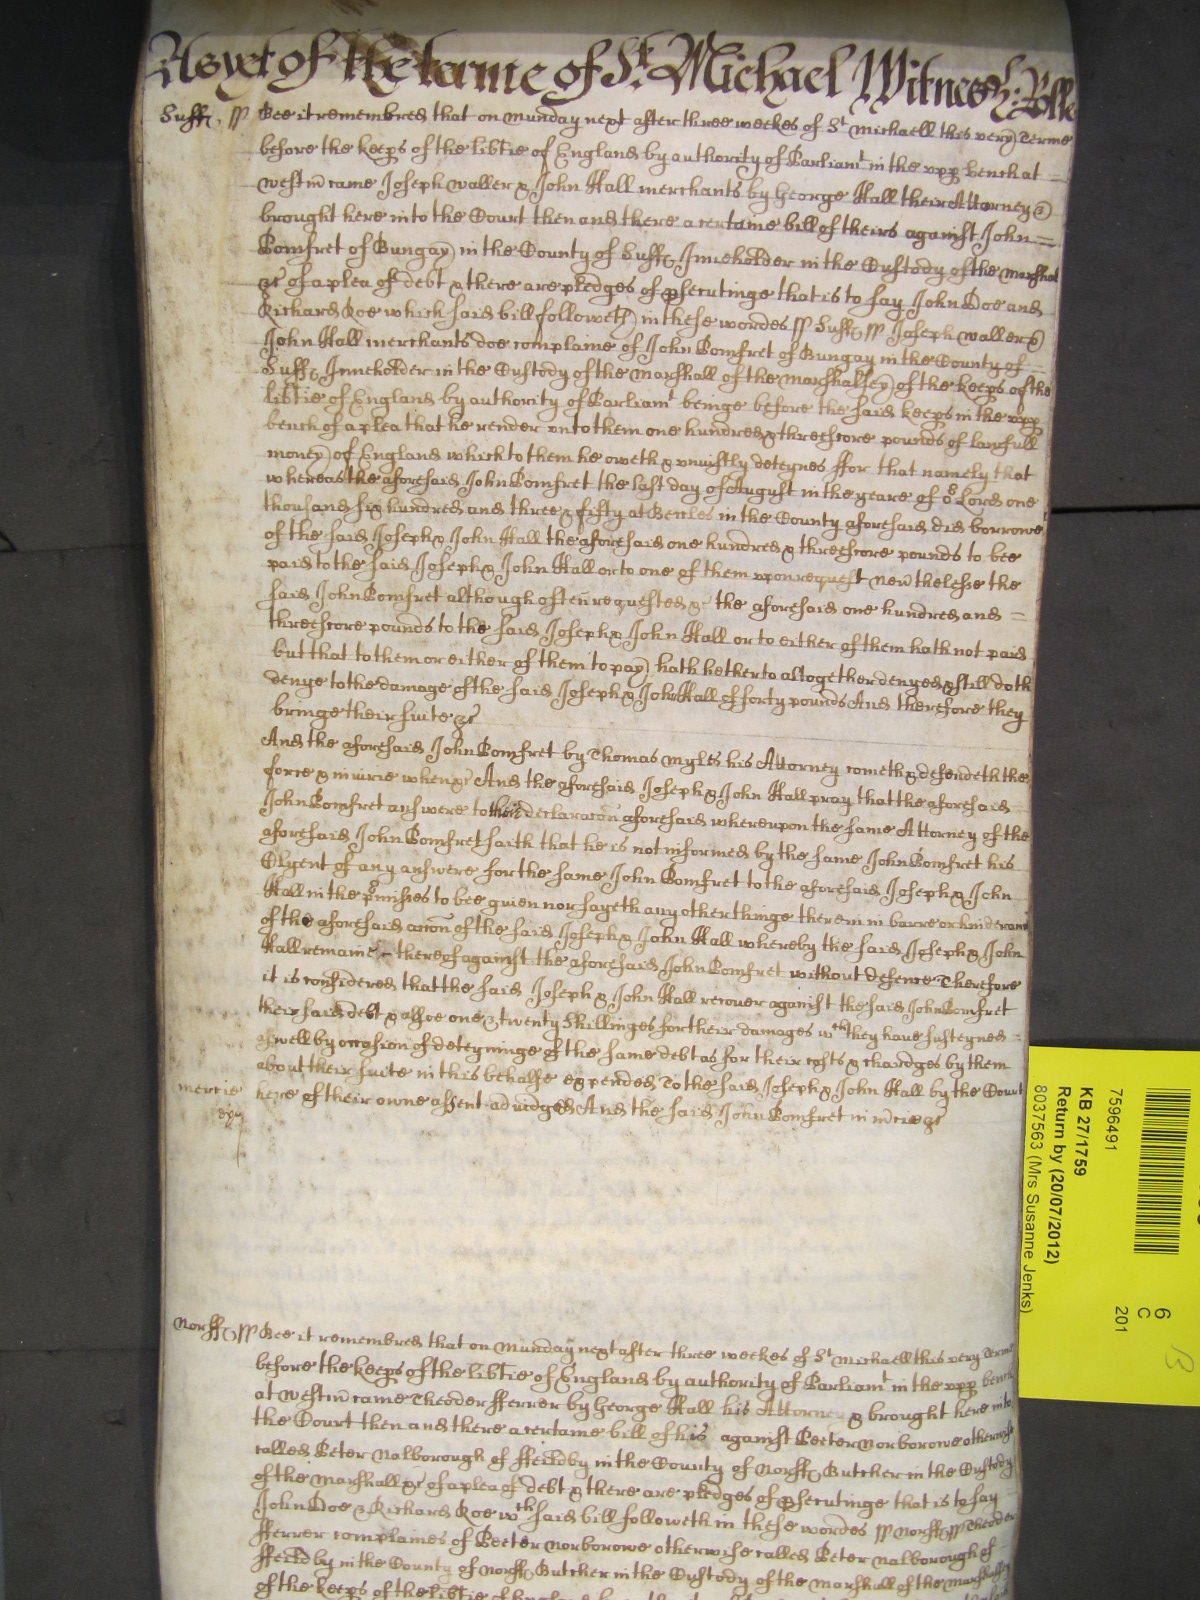 As yet of the terme of St. Michael Witness H: Rolle
Suff ss Bee it remembred that on Munday next after three weekes of St Michaell this very Terme
before the keeps of the libtie of England by authority of Parliamt in the upp bench at
westm came Joseph waller & John Hall merchants by George Hall their Attorney &
brought here into the Court then and there a certaine bill of theirs against John
Pomfret of Bungay in the County of Suff Inneholder in the Custody of the marshal
&c of a plea of debt & there are pledges of psecutinge that is to say John Doe and
Richard Roe which said bill followeth in these wordes ss Suff ss Joseph waller &
John Hall merchants doe complaine of John Pomfret of Bungay in the County of
Suff Inneholder in the Custody of the marshall of the marshalsey of the keeps of the
libtie of England by authority of Parliamt beinge before the said keeps in the upp
bench of a plea that he render unto them one hundred & threescore pounds of lawfull
money of England which to them he oweth & uniustly deteynes ffor that namely that
whereas the aforesaid John Pomfret the last day of August in the yeare of or Lord one
thousand six hundred and three & fifty at Beccles in the County aforesaid did borrowe
of the said Joseph & John Hall the aforesaid one hundred & threescore pounds to bee
paid to the said Joseph & John Hall or to one of them upon request nevthelesse the
said John Pomfret although often requested &c the aforesaid one hundred and
threescore pounds to the said Joseph & John Hall or to either of them hath not paid
but that to them or either of them to pay hath hetherto altogether denyed & still doth
denye to the damage of the said Joseph & John Hall of forty pounds And therefore they
bringe their suite &c
And the aforesaid John Pomfret by Thomas Myles his Attorney cometh & defendeth the
force & iniurie when &c And the aforesaid Joseph & John Hall pray that the aforesaid
John Pomfret answere to their declaracon aforesaid whereupon the same Attorney of the
aforesaid John Pomfret saith that he is not informed by the same John Pomfret his
Clyent of any answere for the same John Pomfret to the aforesaid Joseph & John
Hall in the pmisses to bee given nor sayeth any other thinge therein in barre or hinderance
of the aforesaid accon of the said Joseph & John Hall whereby the said Joseph & John
Hall remaine thereof against the aforesaid John Pomfret without defence Therefore
it is considered that the said Joseph & John Hall recover against the said John Pomfret
their said debt & alsoe one & twenty shillinges for their damages wch they have susteyned
aswell by occasion of deteyninge of the same debt as for their costs & chardges by them
about their suite in this behalfe expended To the said Joseph & John Hall by the Court
mercie here of their owne assent adiudged And the said John Pomfret in mcie &c
Norff ss Bee it remembred that on Munday next after three weekes of St Michaell this very Terme
before the keeps of the libtie of England by authority of Parliamt in the upp bench
at westm came Theoder fferrer by George Hall his Attorney & brought here into
the Court then and there a certaine bill of his against Peeter Norborowe otherwise
called Peter Nalborough of ffeildby in the County of Norff Butcher in the Custody
of the Marshall &c of a plea of debt & there are pledges of psecutinge that is to say
John Doe & Richard Roe wch said bill followeth in these wordes ss Norff ss Theoder
fferrer complaines of Peeter Norborowe otherwise called Peter Nalborough of
ffeildby in the County of Norff Butcher in the Custody of the marshall of the marshalsey
of the keeps of the libtie of England
7596491
KB 27/1759
Return by (20/07/2012)
8037563 (Mrs Susanne Jenks)
6
C
201